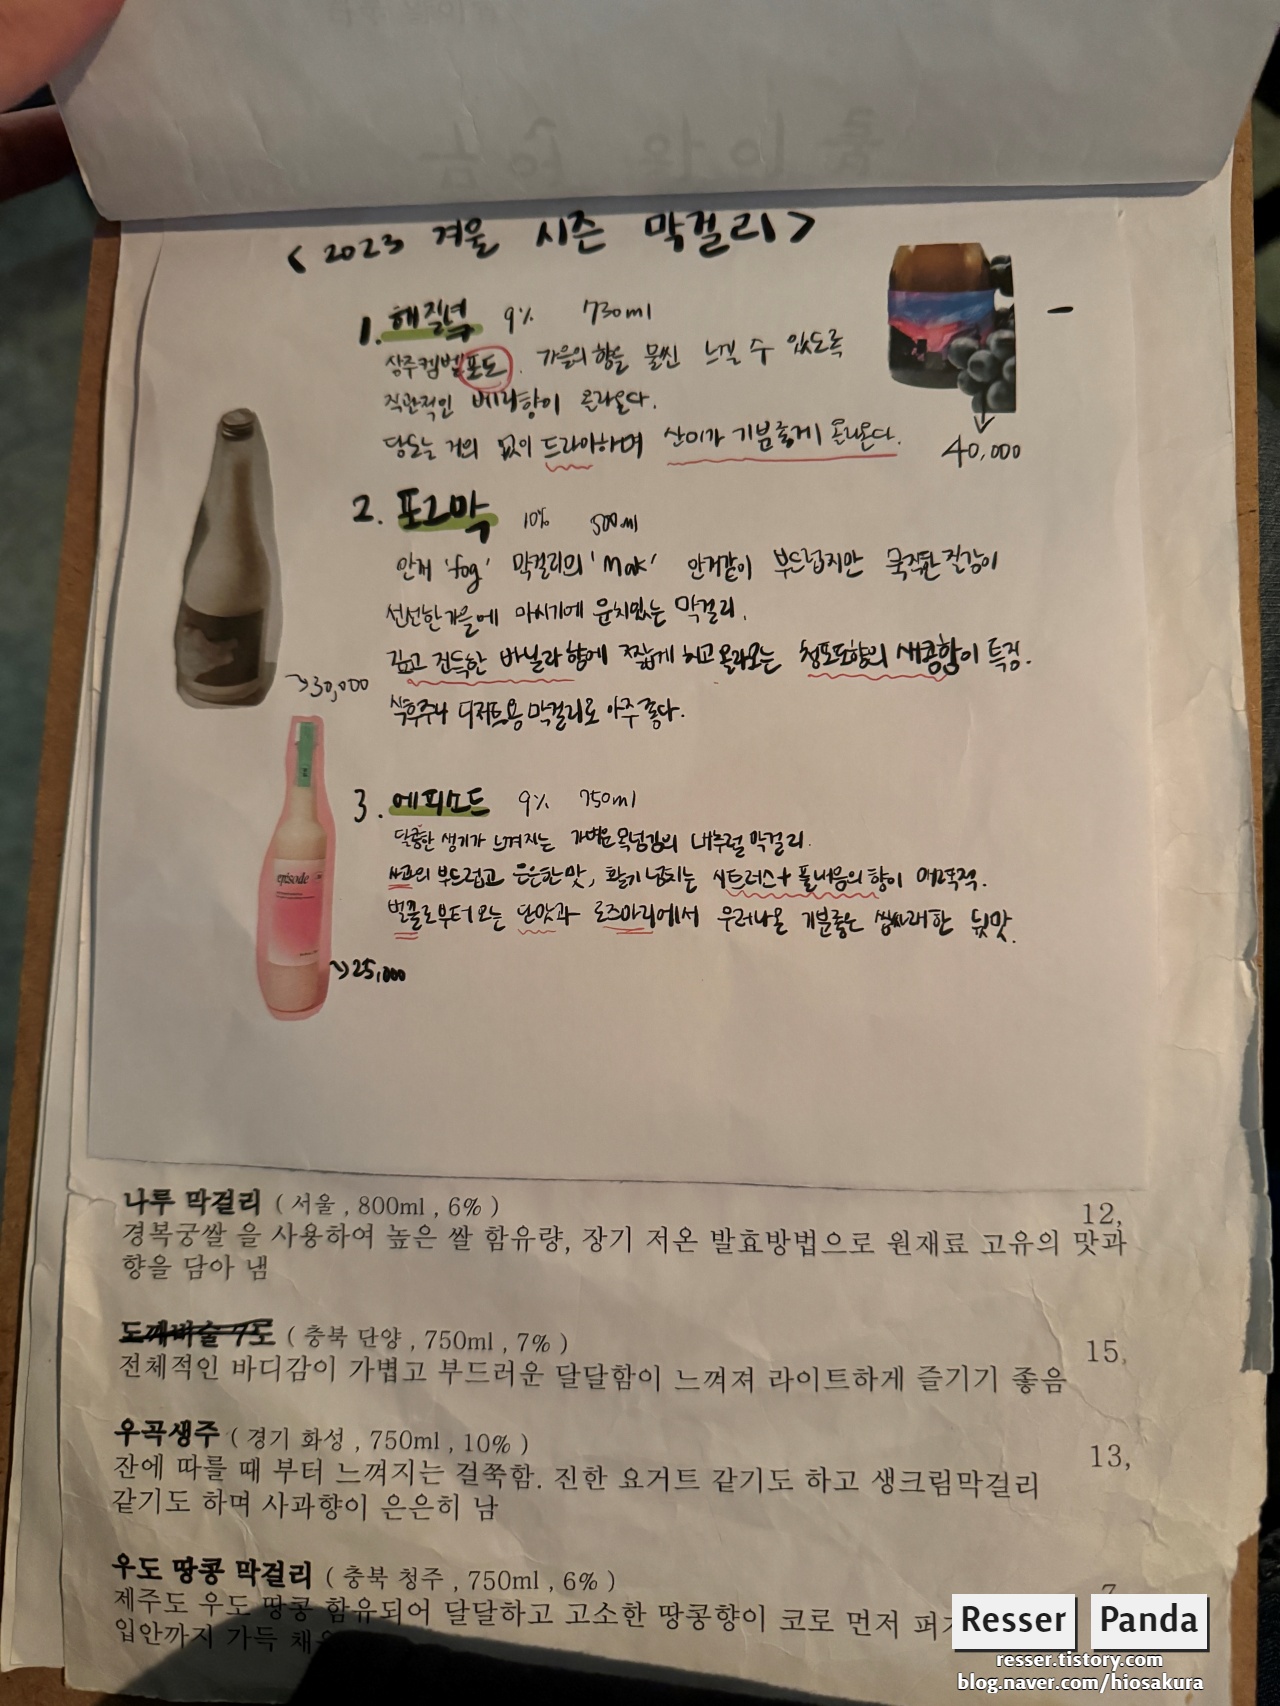 <2023 겨울 시즌 막걸리>
1. 해질녘 9% 730ml
상주켐벨포도. 가을의 향을 물씬 느낄 수 있도록
직관적인 베리향이 올라온다.
당도는 거의 없이 드라이하며 산미가 기분좋게 올라온다.
40,000
2. 포그막 10% 500ml
안개 'fog' 막걸리의 'Mak' 안개같이 부드럽지만 묵직한 질감이
선선한 가을에 마시기에 운치있는 막걸리.
깊고 진득한 바닐라 향에 짧게 치고 올라오는 청포도향의 새콤함이 특징.
식후주나 디저트용 막걸리로 아주 좋다.
30,000
3. 에피소드 9% 750ml
달콤한 생기가 느껴지는 가벼운 목넘김의 내추럴 막걸리.
사과의 부드럽고 은은한 맛, 활기 넘치는 시트러스+풀내음의 향이 매력적.
벌꿀로부터 오는 단맛과 로즈마리에서 우러나온 기분좋은 쌉싸래한 뒷맛.
episode
25,000
나루 막걸리 ( 서울 , 800ml , 6% ) 12,
경복궁쌀 을 사용하여 높은 쌀 함유량, 장기 저온 발효방법으로 원재료 고유의 맛과
향을 담아 냄
도깨비술 7도 ( 충북 단양 , 750ml , 7% ) 15,
전체적인 바디감이 가볍고 부드러운 달달함이 느껴져 라이트하게 즐기기 좋음
우곡생주 ( 경기 화성 , 750ml , 10% ) 13,
잔에 따를 때 부터 느껴지는 걸쭉함. 진한 요거트 같기도 하고 생크림막걸리
같기도 하며 사과향이 은은히 남
우도 땅콩 막걸리 ( 충북 청주 , 750ml , 6% )
제주도 우도 땅콩 함유되어 달달하고 고소한 땅콩향이 코로 먼저
입안까지 가득
Resser Panda
resser.tistory.com
blog.naver.com/hiosakura